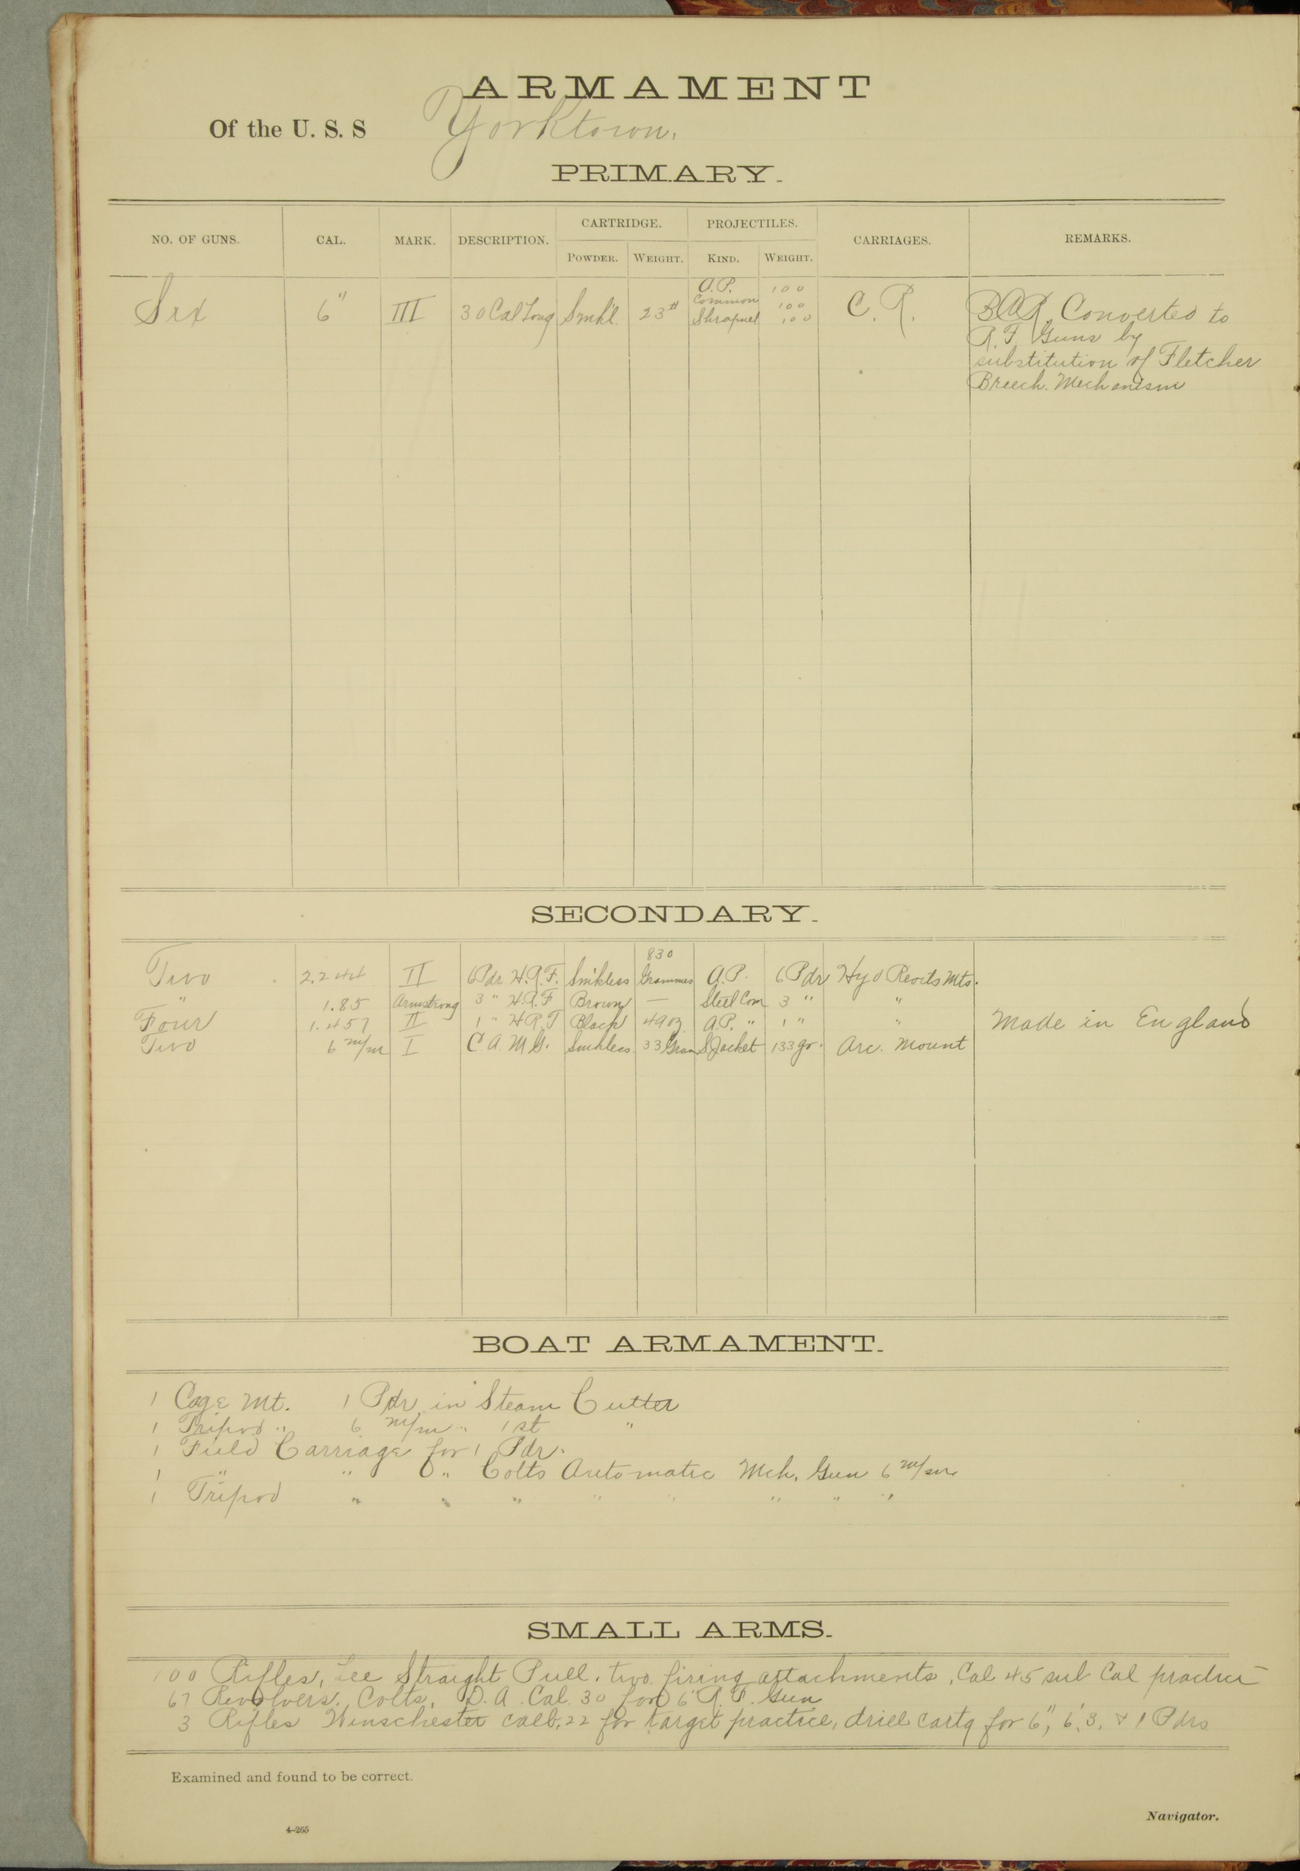 ARMAMENT
Of the U. S. S Yorktown.
PRIMARY.
NO. OF GUNS. CAL. MARK. DESCRIPTION. CARTRIDGE. PROJECTILES. CARRIAGES. REMARKS.
POWDER. WEIGHT. KIND. WEIGHT.
Six 6" III 30 Cal Long Smk'l 23# A.P. 100 C. R. B.A.R. Converted to
Common 100
Shrapnel 100
R. F. Guns by
substitution of Fletcher
Breech. Mechanism
SECONDARY.
Two 2.244 II 6 Pdr H.R.F. Smkless 830 Grammes A.P. 6 Pdr Hyd Mts.
" 1.85 Armstrong 3 " H.R.F Brown — Steel Com 3 " "
Four 1.457 II 1 " H.R.F Black 49oz A.P. " 1 " " Made in England
Two 6 m/m I C. A. M. G. Smkless 33 Gram S Jacket 133 gr. Arc. Mount
BOAT ARMAMENT.
1 Cage Mt. 1 Pdr in Steam Cutter
1 Tripod " 6 m/m " 1st "
1 Field Carriage for 1 Pdr.
1 " " " Colts Automatic Mch. Gun 6 m/m
1 Tripod " " " " " " " "
SMALL ARMS.
100 Rifles, Lee Straight Pull. two firing attachments, Cal 45 sub Cal practice
67 Revolvers. Colts, D. A. Cal. 30 for 6" R. F. Gun
3 Rifles Winschester calb. 22 for target practice, drill cartg for 6", 6, 3, & 1 Pdrs
Examined and found to be correct.
Navigator.
4-265